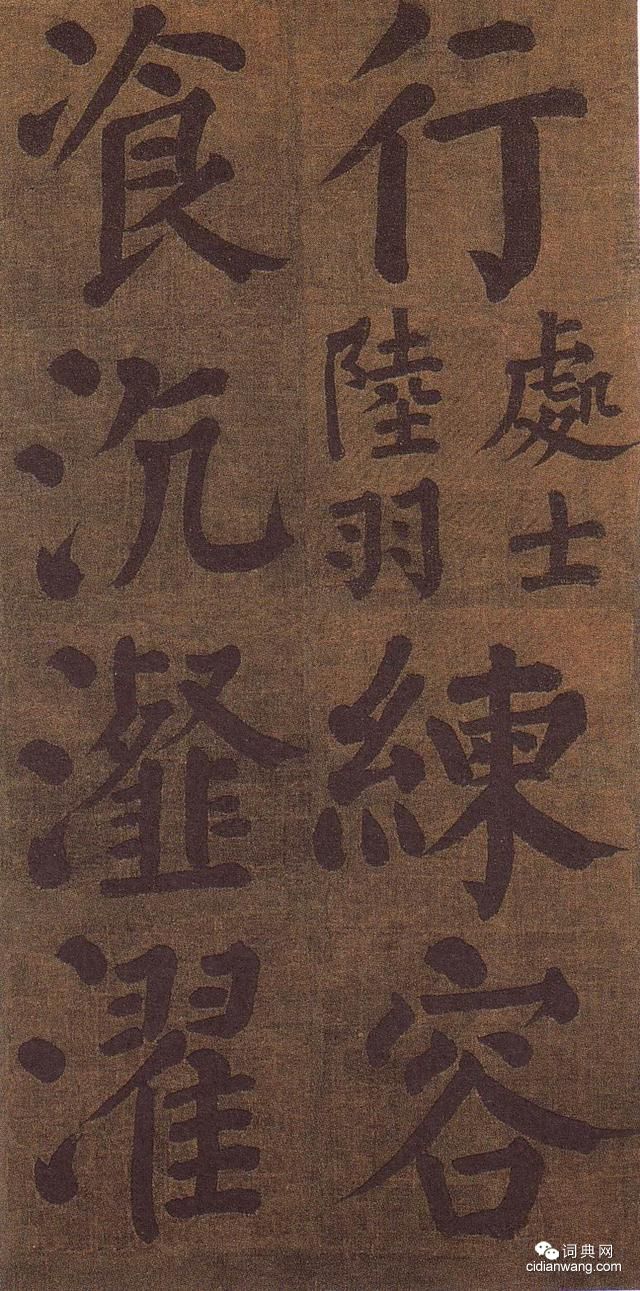 行
處士
陸羽
練容
飡沆瀣濯
词典网
cidianwang.com